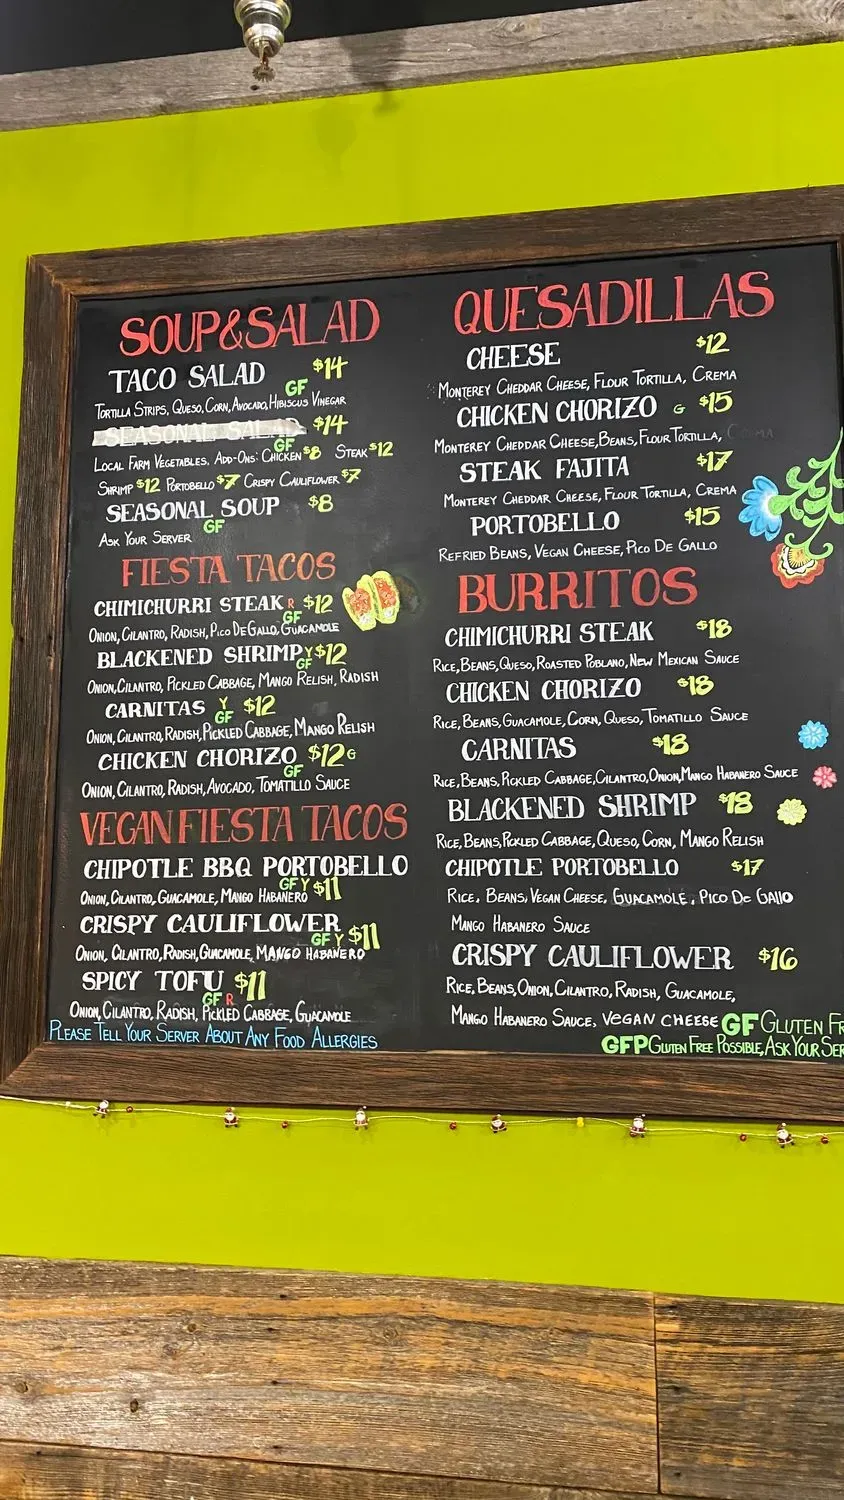 SOUP&SALAD
TACO SALAD $14
GF
TORTILLA STRIPS, QUESO, CORN, AVOCADO, HIBISCUS VINEGAR
SEASONAL SALAD $14
GF
LOCAL FARM VEGETABLES. ADD-ONS: CHICKEN $8 STEAK $12
SHRIMP $12 PORTOBELLO $7 CRISPY CAULIFLOWER $7
SEASONAL SOUP $8
GF
ASK YOUR SERVER
FIESTA TACOS
CHIMICHURRI STEAK R $12
GF
ONION, CILANTRO, RADISH, PICO DE GALLO, GUACAMOLE
BLACKENED SHRIMP Y $12
GF
ONION, CILANTRO, PICKLED CABBAGE, MANGO RELISH, RADISH
CARNITAS Y $12
GF
ONION, CILANTRO, RADISH, PICKLED CABBAGE, MANGO RELISH
CHICKEN CHORIZO $12 G
GF
ONION, CILANTRO, RADISH, AVOCADO, TOMATILLO SAUCE
VEGAN FIESTA TACOS
CHIPOTLE BBQ PORTOBELLO
GF Y $11
ONION, CILANTRO, GUACAMOLE, MANGO HABANERO
CRISPY CAULIFLOWER
GF Y $11
ONION, CILANTRO, RADISH, GUACAMOLE, MANGO HABANERO
SPICY TOFU $11
GF R
ONION, CILANTRO, RADISH, PICKLED CABBAGE, GUACAMOLE
PLEASE TELL YOUR SERVER ABOUT ANY FOOD ALLERGIES
QUESADILLAS
CHEESE $12
MONTEREY CHEDDAR CHEESE, FLOUR TORTILLA, CREMA
CHICKEN CHORIZO G $15
MONTEREY CHEDDAR CHEESE, BEANS, FLOUR TORTILLA,
STEAK FAJITA $17
MONTEREY CHEDDAR CHEESE, FLOUR TORTILLA, CREMA
PORTOBELLO $15
REFRIED BEANS, VEGAN CHEESE, PICO DE GALLO
BURRITOS
CHIMICHURRI STEAK $18
RICE, BEANS, QUESO, ROASTED POBLANO, NEW MEXICAN SAUCE
CHICKEN CHORIZO $18
RICE, BEANS, GUACAMOLE, CORN, QUESO, TOMATILLO SAUCE
CARNITAS $18
RICE, BEANS, PICKLED CABBAGE, CILANTRO, ONION, MANGO HABANERO SAUCE
BLACKENED SHRIMP $18
RICE, BEANS, PICKLED CABBAGE, QUESO, CORN, MANGO RELISH
CHIPOTLE PORTOBELLO $17
RICE, BEANS, VEGAN CHEESE, GUACAMOLE, PICO DE GALLO
MANGO HABANERO SAUCE
CRISPY CAULIFLOWER $16
RICE, BEANS, ONION, CILANTRO, RADISH, GUACAMOLE,
MANGO HABANERO SAUCE, VEGAN CHEESE
GF GLUTEN FR
GFP GLUTEN FREE POSSIBLE, ASK YOUR SER